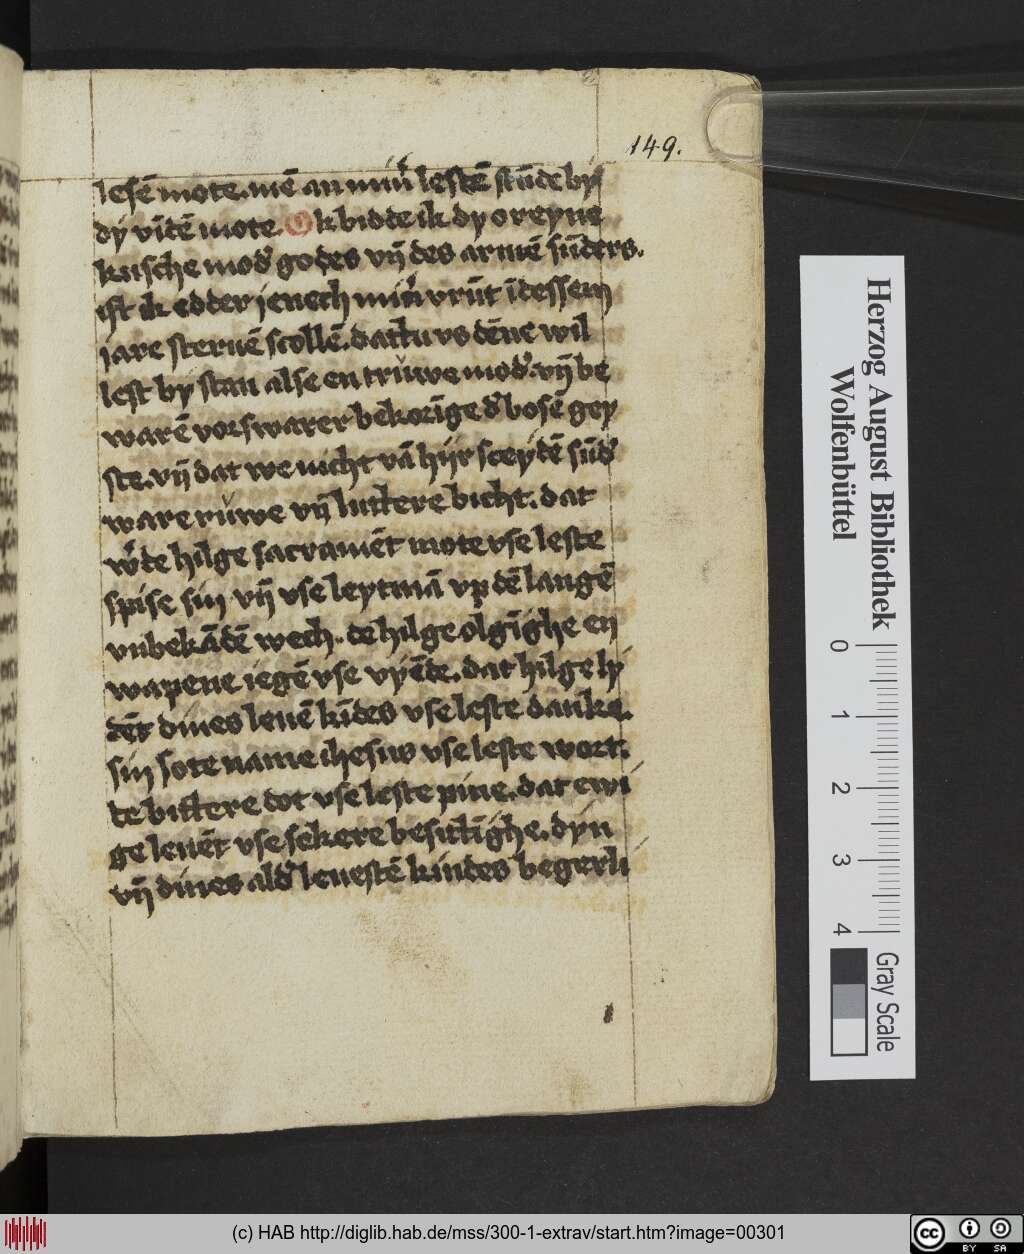 149.
lesē mote. mē an mīn̄ lestē stūde by
dy vīdē mote. Ok bidde ik dy o reyne
kusche mod̛ godes vn̄ des armē sūders.
ift ik edder jenech mīn̄ vrūt ī dessem
jare steruē scollē. dattu vs dēne wil
lest by stan alse en truwe mod̛. vn̄ be
warē vor swarer bekorīge d̛ bosē gey
ste. vn̄ dat we nicht vā hyr sceydē sūd̛
ware ruwe vn̄ luttere bicht. dat
w̛de hilge sacramēt mote vse leste
spise sin vn̄ vse leytmā vp dē langē
vnbekādē wech. de hilge olgīghe en
wapene iegē vse vyēde. dat hilge ly
dēt dines leuē kīdes vse leste danke.
sin sote name ihesus vse leste wort.
de bittere dot vse leste pine. dat ewi
ge leuēt vse sekere besittīghe. dyn
vn̄ dines ald̛ leuestē kindes begerli
Herzog August Bibliothek
Wolfenbüttel
0 1 2 3 4
Gray Scale
(c) HAB http://diglib.hab.de/mss/300-1-extrav/start.htm?image=00301
cc BY SA